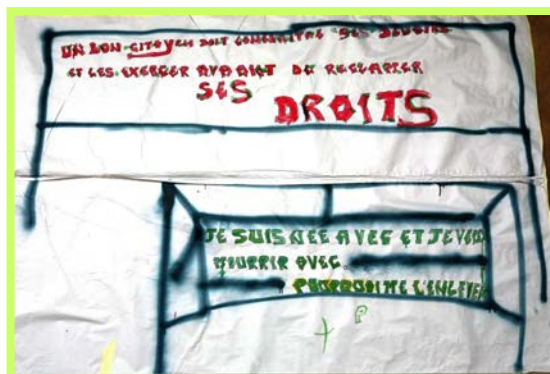 UN BON CITOYEN DOIT CONNAITRE SES DEVOIRS
ET LES EXERCER AVANT DE RECLAMER
SES
DROITS
JE SUIS NEE AVEC ET JE VEUX
MOURRIR AVEC.
POURQUOI ME L'ENLEVER